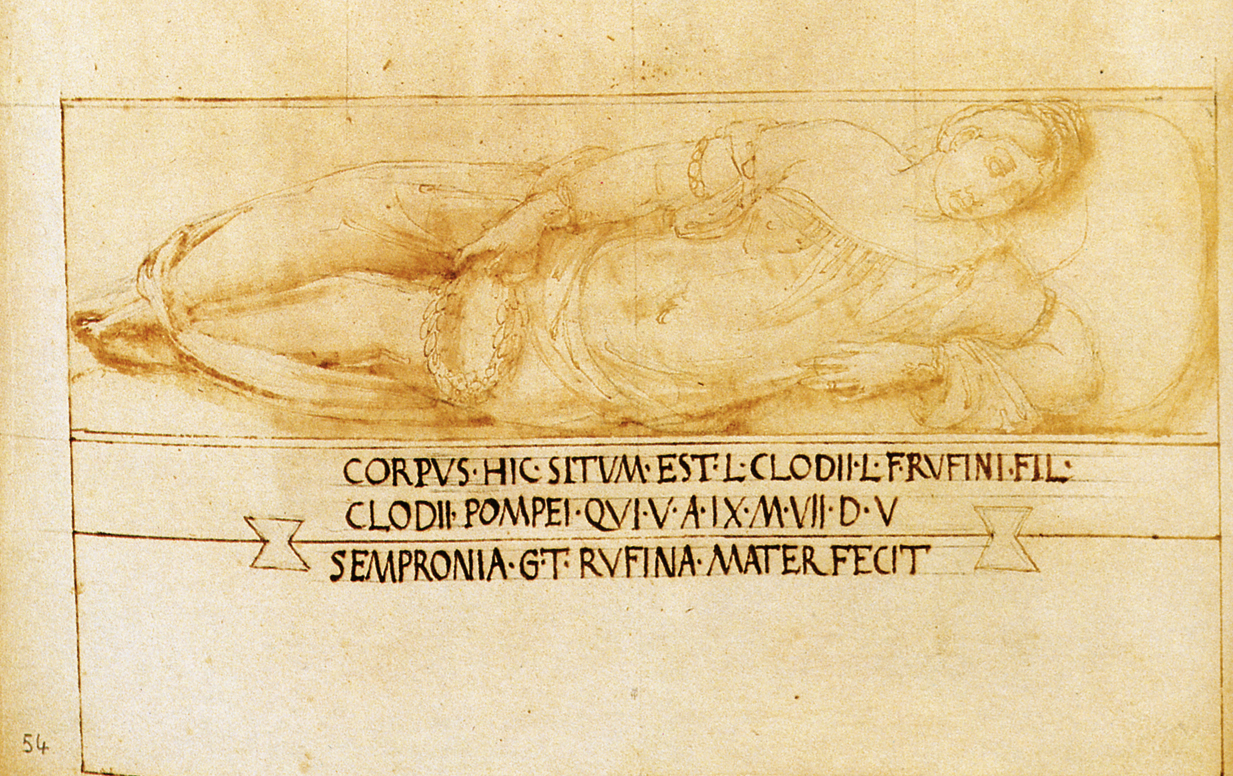 CORPVS·HIC·SITVM·EST·L·CLODII·L·F·RVFINI·FIL·
CLODII·POMPEI·QVI·V·A·IX·M·VII·D·V
SEMPRONIA·G·T·RVFINA·MATER FECIT
54